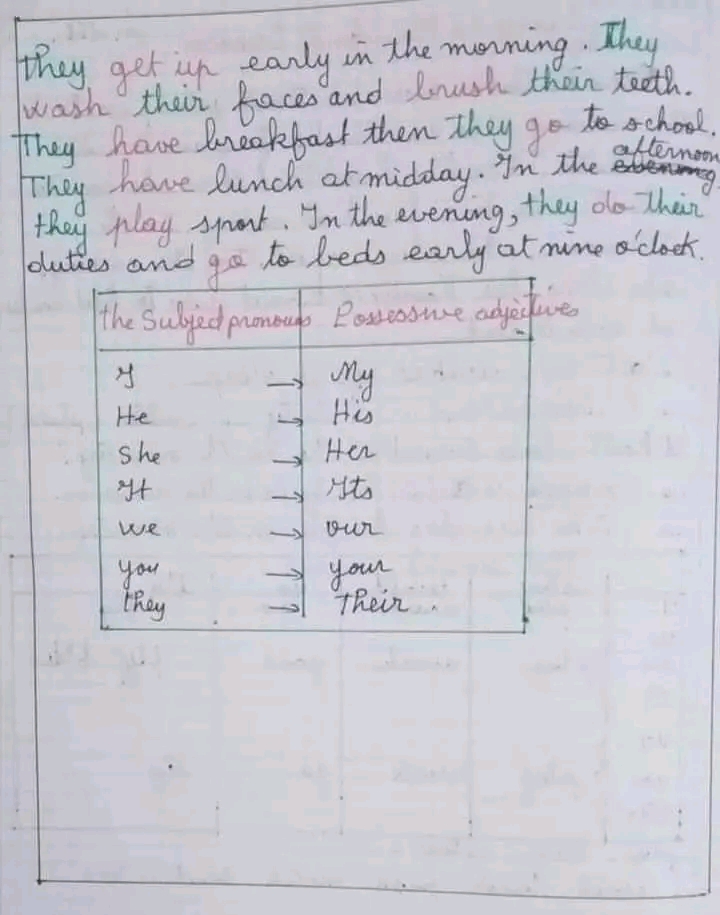 they get up early in the morning. They
wash their faces and brush their teeth.
They have breakfast then they go to school.
They have lunch at midday. In the evening afternoon
they play sport. In the evening, they do their
duties and go to beds early at nine o'clock.
the Subject pronouns Possessive adjectives
I → My
He → His
She → Her
It → Its
we → our
you → your
they → their